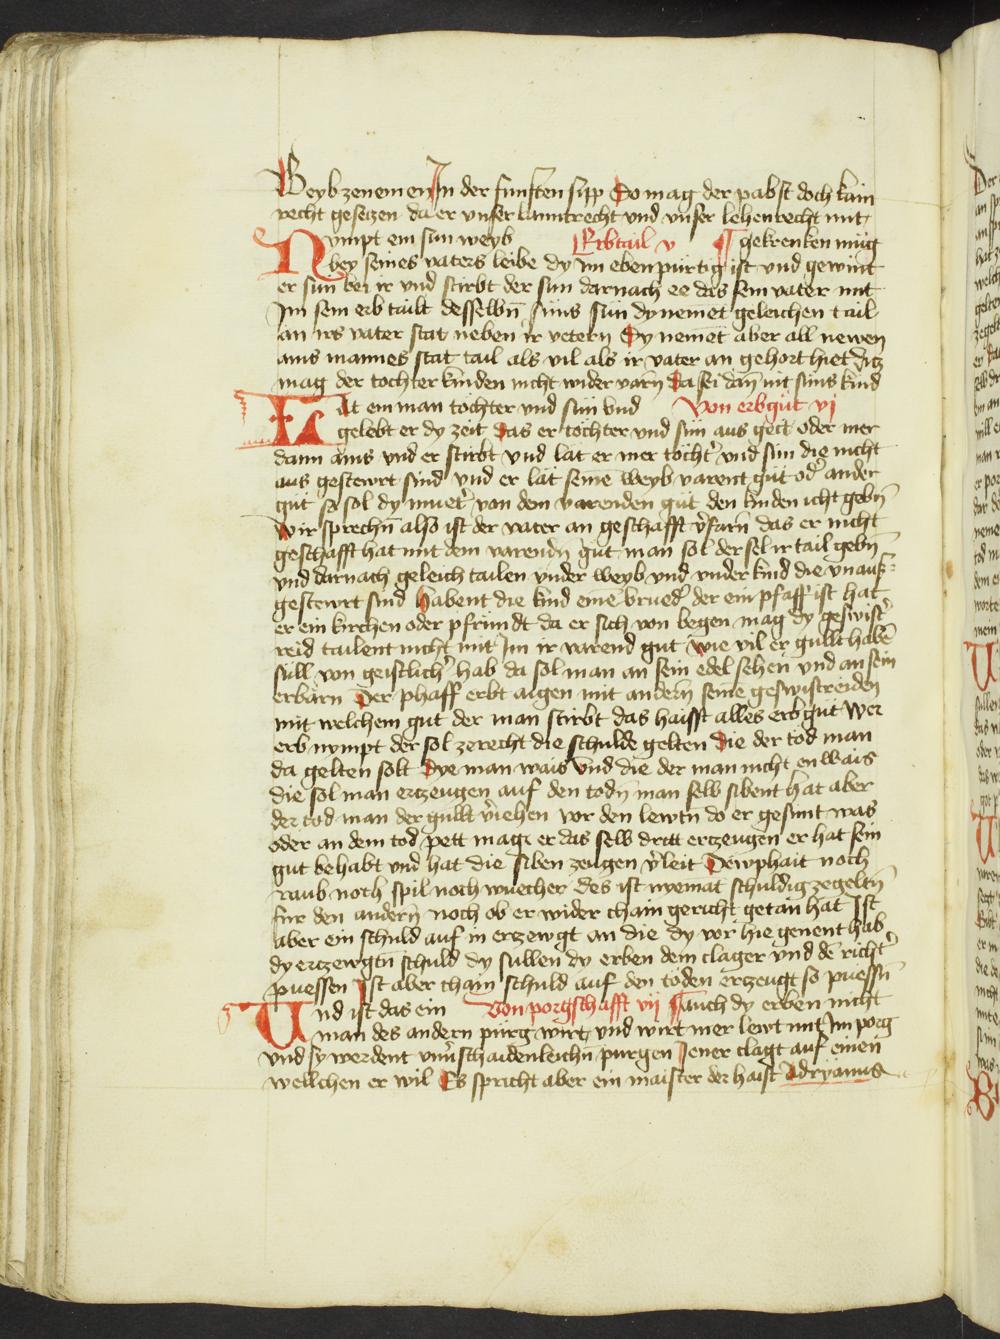 Weyb zenemen In der funften sipp Do mag der pabst doch kain
recht geseczen da er unser lanntrecht und unser lehenrecht mit
Nympt ein sun weyb Erbtail v ¶ gekrenken mug
bey seines vaters leibe dy im ebenpürtig ist und gewint
er sun bei ir und stirbt der sun darnach ee das sein vater mit
Im sein erb tailt desselbn̄ suns sün dy nemet geleichen tail
an irs vater stat neben ir vetern Dy nemēt aber all newen
ains mannes stat tail als vil als ir vater an gehort hiet Ditz
mag der tochter kinden nicht wider varn̄ da sei dan̄ nit suns kind
Hat ein man tochter und sün und Von erbgüt vj
gelebt er dy zeit das er tochter und sün aus geit oder mer
dann ains und er stirbt und lat er mer tocht' und sün die nicht
aus gestewrt sind und er lät seinē weyb varent güt od' ander
güt so sol dy muet' von dem varenden güt den kinden icht gebn̄
Wir sprechn̄ also ist der vater an geschafft v'farn̄ das er nicht
geschafft hat mit dem varendn̄ gut man sol der sel ir tail gebn̄
und darnach geleich tailen under weyb und under kind die unauß=
gestewrt sind habent die kind einē brued' der ein pfaff ist hat
er ein kirchen oder pfründt da er sich von begen mag dy geswist'
reid tailent nicht mit Im ir varend gut wie vil er gullt habē
sull von geistlich' hab da sol man an sein edel sehen und an sein
erbarn Der phaff erbt aigen mit andern̄ seinē geswistreiden
mit welchem gut der man stirbt das haisst alles erbgüt Wer
erb nympt der sol zerecht die schulde gelten die der tod man
da gelten solt Dye man wais und die der man nicht en wais
die sol man erczeugen auf den todn̄ man selb sibent hat aber
der tod man der gullt v'iehen vor den lewtn do er gesunt was
oder an dem tod pett mag er das selb dritt erczeugen er hat sein
gut behabt und hat die siben zeugen v'leit Dewphait noch
raub noch spil noch wuecher des ist nyemat schuldig zegeltn̄
für den andern̄ noch ob er wider chain gericht getan hat Ist
aber ein schuld auf in erczewgt an die dy vor hie genent hab
dy erczewgtn̄ schuld dy sullen dy erben dem clager und dē richt'
puessen Ist aber chain schuld auf den toden erzeugt so puessn̄
Und ist das ein Von porgschafft vij ¶ auch dy erben nicht
man des andern pürg wirt und wirt mer lewt mit Im porg
und sy werdent unu'schaidenleichn̄ purgen Jener clagt auf einen
wellchen er wil Es spricht aber ein maister der haist Adryanus